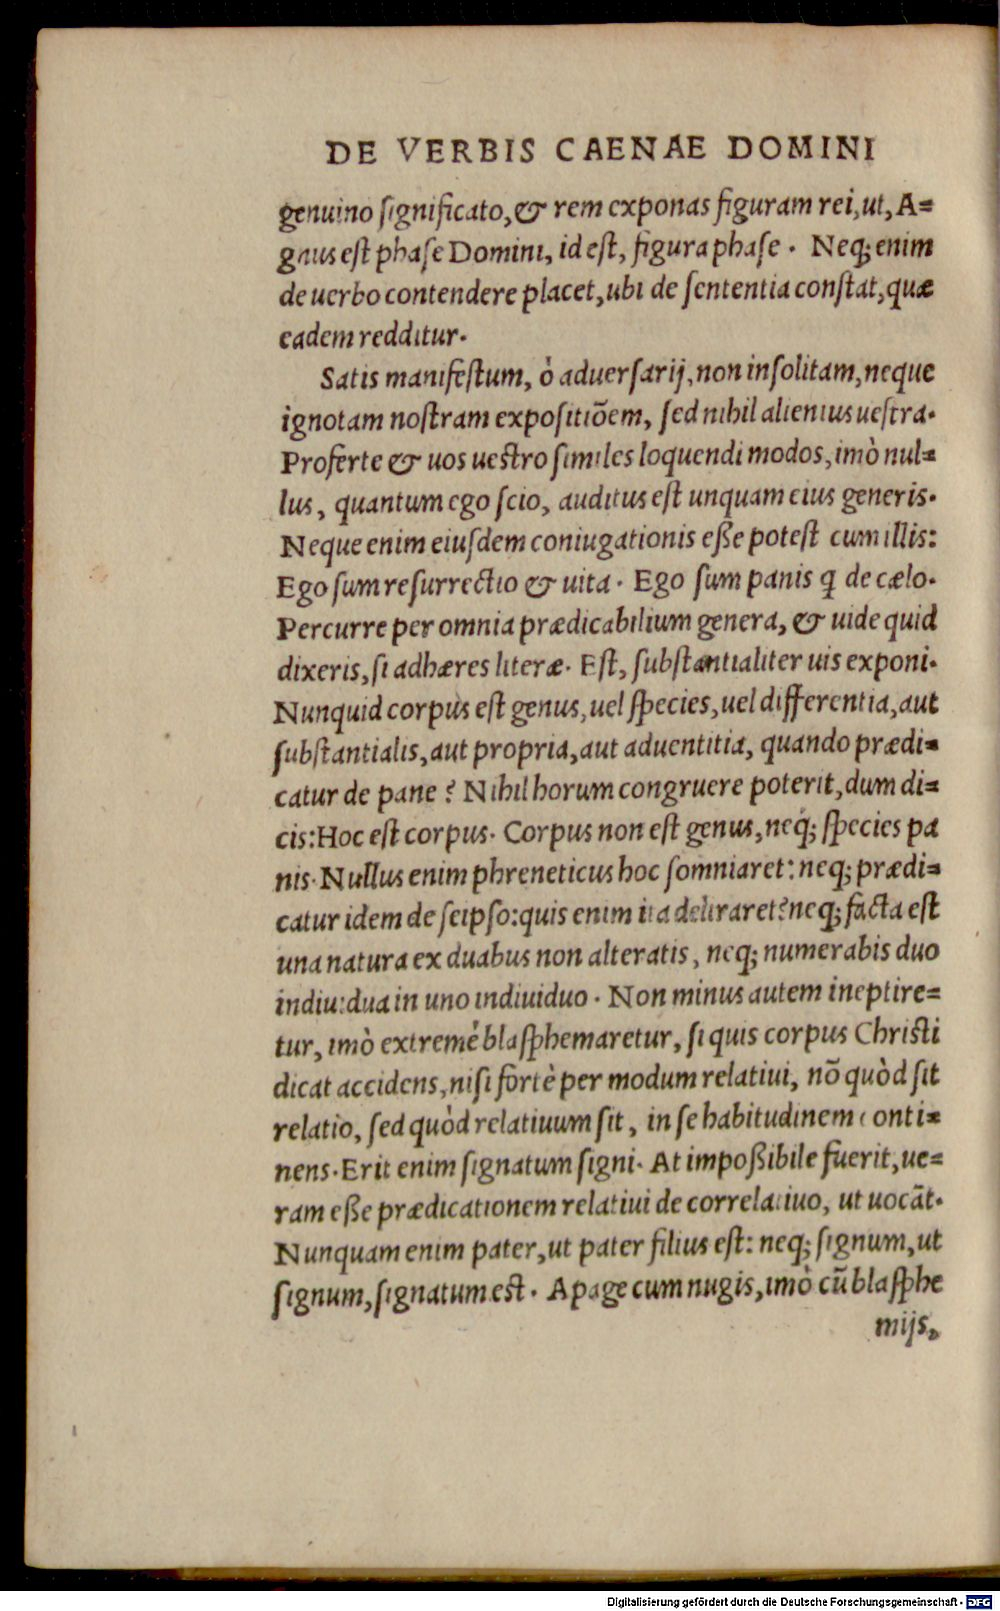 DE VERBIS CAENAE DOMINI
genuino ſignificato, & rem exponas figuram rei, ut, A=
gnus eſt phaſe Domini, id eſt, figura phaſe. Neq; enim
de uerbo contendere placet, ubi de ſententia conſtat, quæ
eadem redditur.
Satis manifeſtum, ò aduerſarij, non inſolitam, neque
ignotam noſtram expoſitiõem, ſed nihil alienius ueſtra.
Proferte & uos ueſtro ſimiles loquendi modos, imò nul=
lus, quantum ego ſcio, auditus eſt unquam eius generis.
Neque enim eiuſdem coniugationis eße poteſt cum illis:
Ego ſum reſurrectio & uita. Ego ſum panis q de cælo.
Percurre per omnia prædicabilium genera, & uide quid
dixeris, ſi adhæres literæ. Eſt, ſubſtantialiter uis exponi.
Nunquid corpus eſt genus, uel ſpecies, uel differentia, aut
ſubſtantialis, aut propria, aut aduentitia, quando prædi=
catur de pane? Nihil horum congruere poterit, dum di=
cis: Hoc eſt corpus. Corpus non eſt genus, neq; ſpecies pa
nis. Nullus enim phreneticus hoc ſomniaret: neq; prædi=
catur idem de ſeipſo: quis enim ita deliraret? neq; facta eſt
una natura ex duabus non alteratis, neq; numerabis duo
indiuidua in uno indiuiduo. Non minus autem ineptire=
tur, imò extremè blaſphemaretur, ſi quis corpus Chriſti
dicat accidens, niſi fortè per modum relatiui, nõ quòd ſit
relatio, ſed quòd relatiuum ſit, in ſe habitudinem conti=
nens. Erit enim ſignatum ſigni. At impoßibile fuerit, ue=
ram eße prædicationem relatiui de correlatiuo, ut uocãt.
Nunquam enim pater, ut pater filius eſt: neq; ſignum, ut
ſignum, ſignatum eſt. Apage cum nugis, imò cũ blaſphe
mijs,
Digitalisierung gefördert durch die Deutsche Forschungsgemeinschaft - DFG